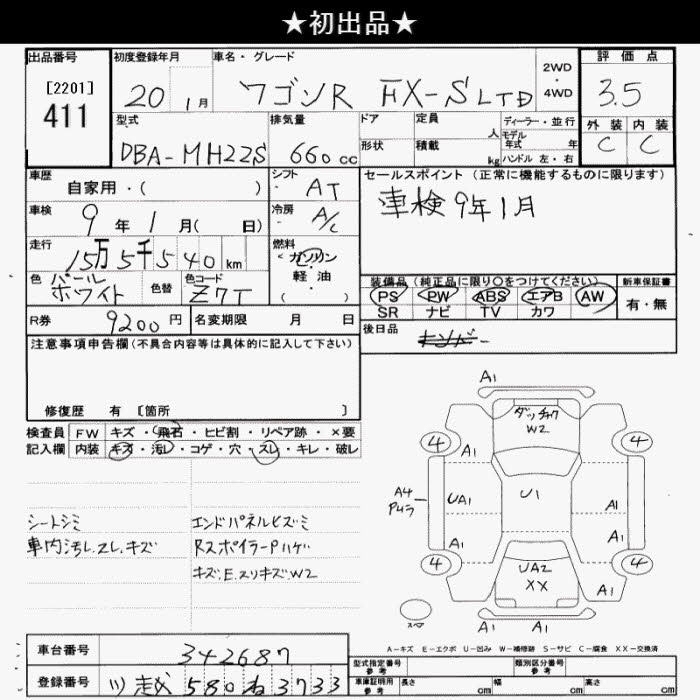 ★初出品★
出品番号 初度登録年月 車名・グレード 2WD・4WD 評価点
[2201] 411 20 1月 ワゴンR FX-S LTD 3.5
型式 排気量 ドア 定員 人 ディーラー・並行 外装 内装
DBA-MH22S 660cc 形状 積載 kg モデル年式 年 ハンドル 左・右 C C
車歴 自家用・( ) シフト AT セールスポイント(正常に機能するものに限ります)
車検 9年1月( 日) 冷房 A/C 車検9年1月
走行 15万5千540km 燃料 ガソリン 軽油 ( )
色 パールホワイト 色替 色コード Z7T 装備品(純正品に限り○をつけてください) 新車保証書
PS PW ABS エアB AW 有・無
SR ナビ TV カワ
R券 9200円 名変期限 月 日 後日品
注意事項申告欄(不具合内容等は具体的に記入して下さい)
修復歴 有 [箇所 ]
検査員 FW キズ・飛石・ヒビ割・リペア跡・×要
記入欄 内装 キズ・汚レ・コゲ・穴・スレ・キレ・破レ
シートシミ
車内汚レ.スレ.キズ
エンドパネルヒズミ
RスポイラーPハゲ
キズ.E.スリキズ.W2
A1
W2
4 4
A1 A1
A4 UA1 U1 A1
A1 A1
4 UA2 4
XX
A1 A1
A1 A1
A-キズ E-エクボ U-凹み W-補修跡 S-サビ C-腐食 XX-交換済
車台番号 342687
型式指定番号 参考 類別区分番号 参考
登録番号 川越 580 ね 3733
車庫証明用 参考 長さ cm 幅 cm 高さ cm